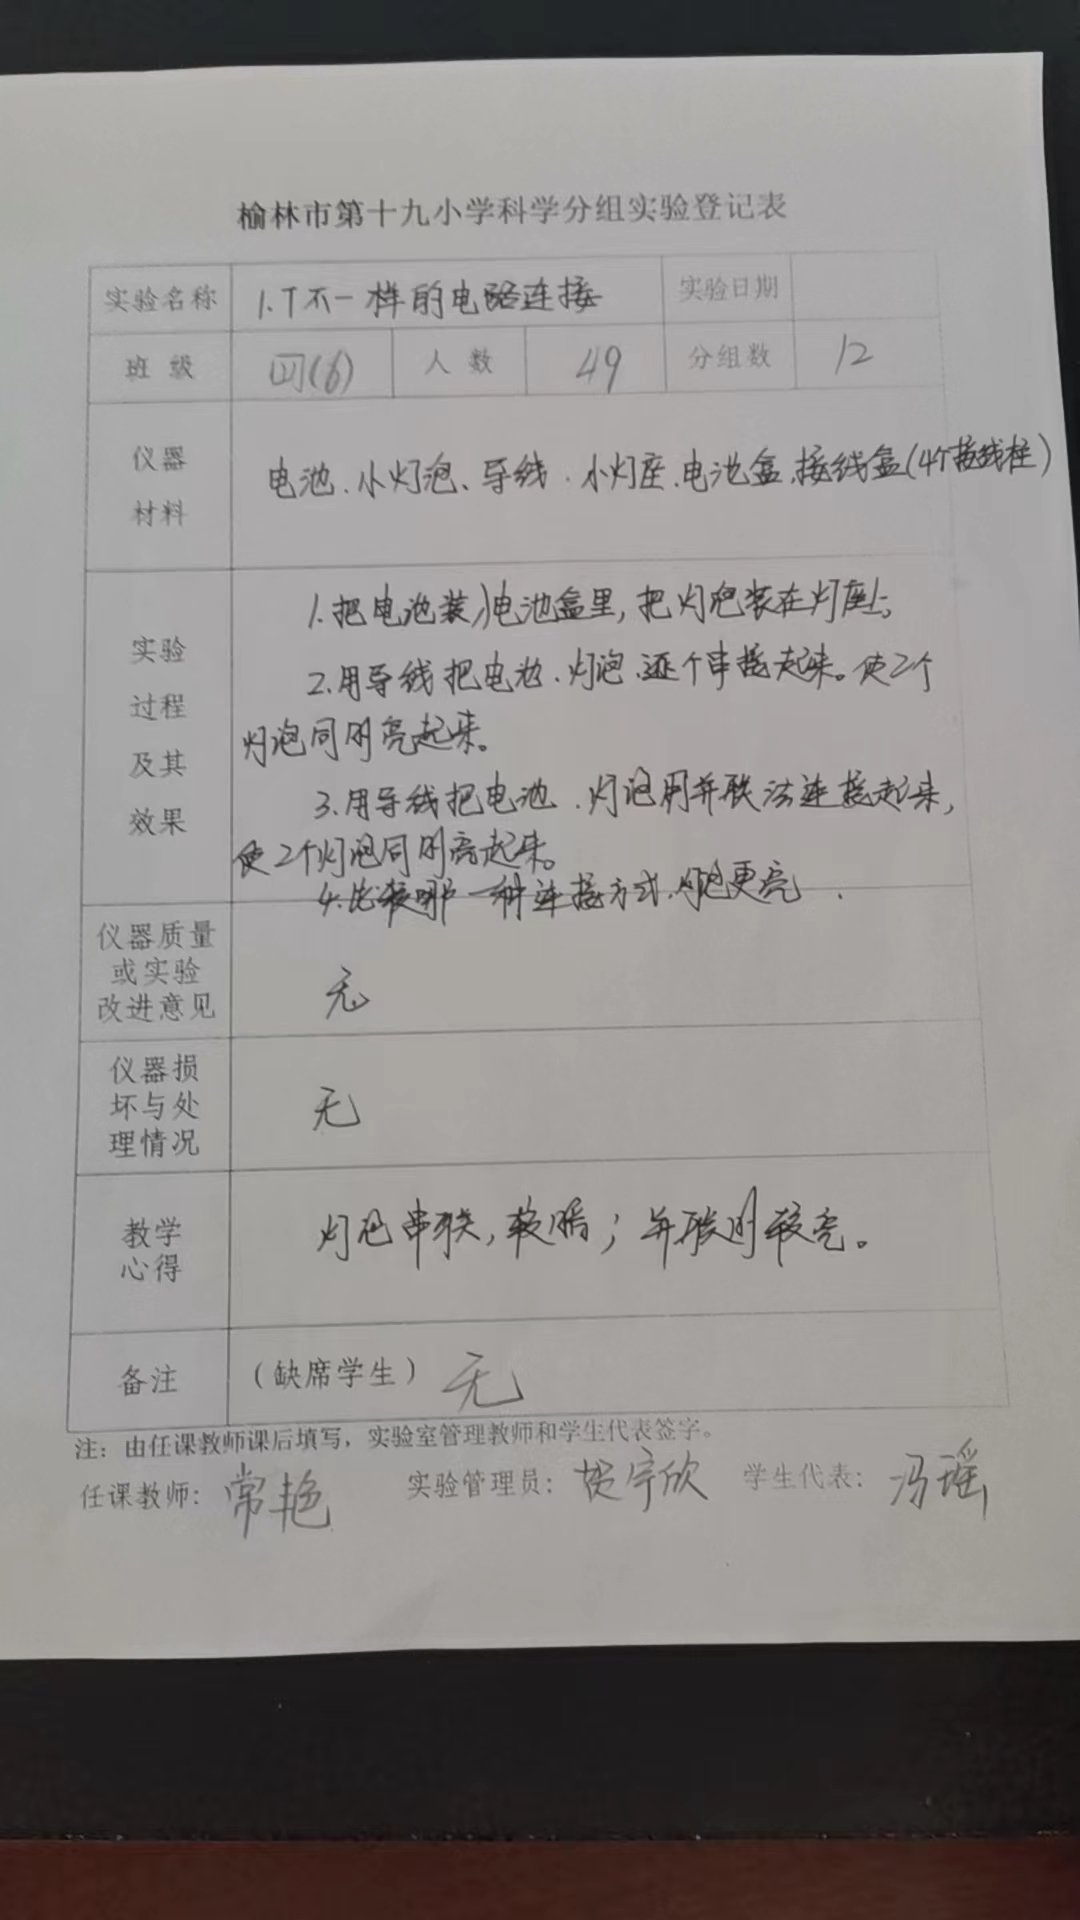 榆林市第十九小学科学分组实验登记表
实验名称 1.7不一样的电路连接 实验日期
班级 四(6) 人数 49 分组数 12
仪器
材料
电池、小灯泡、导线、小灯座、电池盒、接线盒(4个接线柱)
实验
过程
及其
效果
1.把电池装入电池盒里,把灯泡装在灯座上;
2.用导线把电池、灯泡、逐个串接起来。使2个
灯泡同时亮起来。
3.用导线把电池、灯泡用并联法连接起来,
使2个灯泡同时亮起来。
4.比较哪一种连接方式,灯泡更亮.
仪器质量
或实验
改进意见
无
仪器损
坏与处
理情况
无
教学
心得
灯泡串联,较暗;并联时较亮。
备注 (缺席学生) 无
注:由任课教师课后填写,实验室管理教师和学生代表签字。
任课教师:常艳 实验管理员:贺宇欣 学生代表:冯瑶